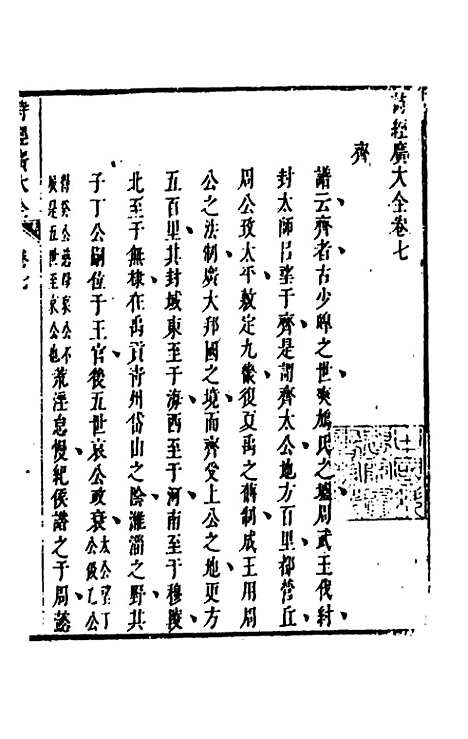 詩經廣大全卷七
齊
譜云齊者古少皥之世爽鳩氏之墟周武王伐紂
封太師呂望于齊是謂齊太公地方百里都營丘
周公致太平敷定九畿復夏禹之舊制成王用周
公之法制廣大邦國之境而齊受上公之地更方
五百里其封域東至于海西至于河南至于穆陵
北至于無棣在禹貢青州岱山之陰濰淄之野其
子丁公嗣位于王官後五世哀公政衰太公望丁公伋乙公
得癸公慈母哀公不辰是五世至哀公也荒淫怠慢紀侯譖之于周懿
詩經廣大全 卷七